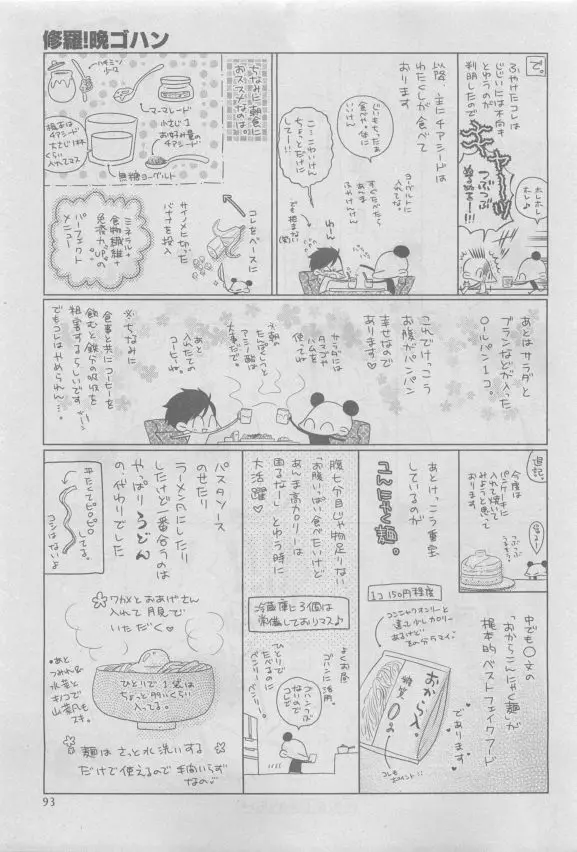 修羅!晩ゴハン
で。
ふやけたコレは
じじいには不向き
とゆうのが
判明したので
ギャーーッ
つぶつぶ
ホレホレ
ホレ♪
以降 主にチアシードは
わたくしが食べて
おります
じじいもちったあ
食べや。体に
いいけ。
こ…こわいけん
ちょっとだけに
してー!!
ヨーグルトに
入れてな。
すぐたべたら
あんま
ふやけんけん
わーん
でも拒まない
(笑)
ちなみに朝食に
おススメなのは。
ハチミツ
少々
マーマレード
小さじ1
お好み量の
チアシード
梶本は
チアシード
大さじ1杯
くらい
入れてマス
無糖ヨーグルト
コレをベースに
サイノメに切った
バナナを投入
ミネラル+
食物繊維+
免疫力UPの
パーフェクト
メニュー
あとはサラダと
ブランなどが入った
ロールパン1コ。
これでけっこう
お腹がパンパン
幸せなので
あります♡
サラダには
タマゴや
ハムを
使ってね
※朝の
たんぱくしつと
アミノ酸は
大事だで。
あと
入れたての
コーヒーね。
※ちなみに
食事と共にコーヒーを
飲むと鉄分の吸収を
阻害するらしいです
でもコレはやめられん…。
追記。
今度は
パンケーキに
入れて焼いて
みようと思って
おります
つぶつぶ
うるせー
あとけっこう重宝
しているのが
こんにゃく麺。
中でも〇文の
「おからこんにゃく麺」が
梶本的ベストフェイクフード
であります♥
1コ 150円程度
コンニャクオンリーと
違い少しカロリー
あるけど
その分うマイ♪
おから入。
糖質
0g
コレも
ポイント!!
腹七分目じゃ物足りない
「お腹いっぱい食べたいけど
あんま高カロリーは
困るなーし」とゆう時に
大活躍♡
冷蔵庫に3個は
常備しておりマス♪
よくお昼
ゴハンに活用。
ひとりで
たべるのに
ベンリーベンリー。
ゴハンつば
ないので
コレで
パスタソース
のせたり
ラーメン風にしたり
したけど一番合うのは
やっぱりうどん
の代わりでした
平たくてピロピロ
してる。
コシはないよ
ワカメとおあげさん
入れて月見で
いただく♡
ひとりで1袋は
ちょっと多いくらい
入ってる。
•あと
つみれ&
水菜と
キノコで
山菜風も
スキ。
麺はさっと水洗いする
だけで使えるので手間いらず
なの♡
93